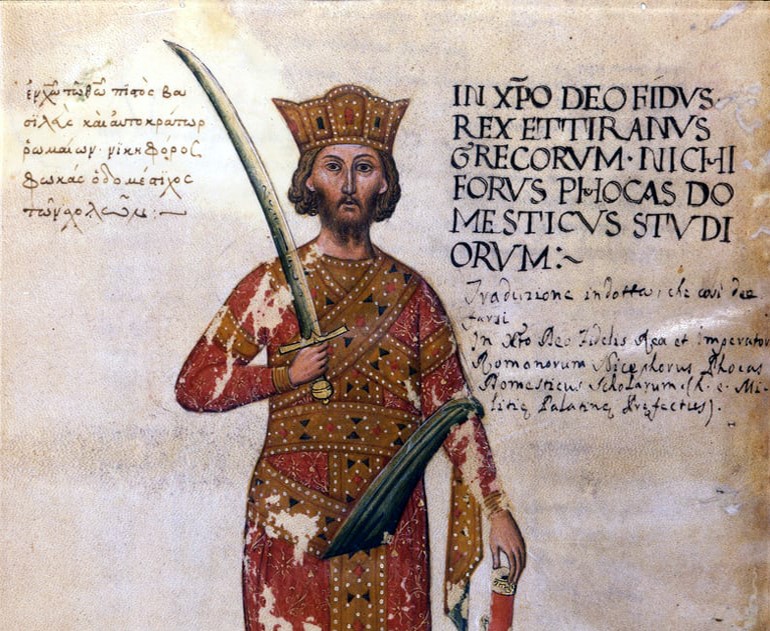 ἐν χω̅ τω̅ θω̅ πιστὸς βα
σιλεὺς καὶ αὐτοκράτωρ
ῥωμαίων · νικηφόρος
φωκάς ὁ δομέστιχος
τῶν σχολῶν : ~
IN XP̅O DEO FIDVS
REX ET TIRANVS
GRECORVM · NICHI
FORVS PHOCAS DO
MESTICVS STVDI
ORVM :~
Traduzione indotta, che così dee
farsi
In Xto Deo Fidelis Rex et Imperator
Romanorum Nicephorus Phocas
Domesticus Scholarum (h. e. Mi-
litię Palatinę Pręfectus).